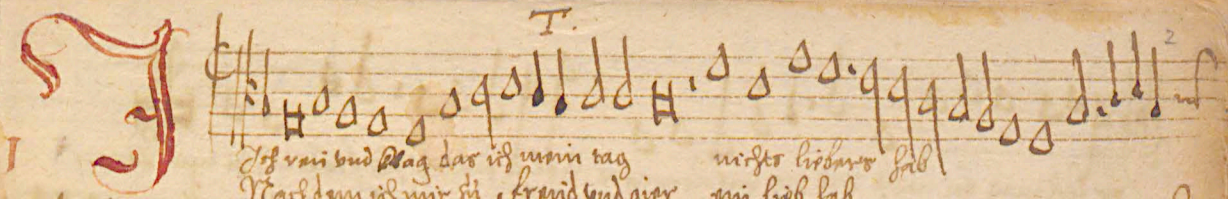 T.
2
I
Ich reu und klag das ich mein tag nichts liebers hab
Nach dem ich mir zu freud und lieb hab